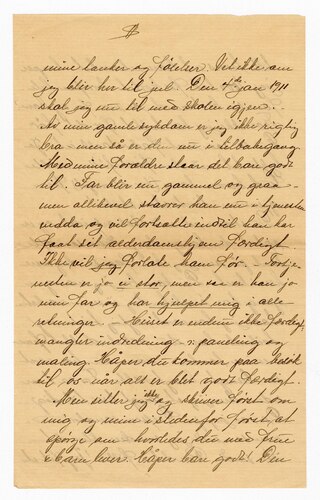 mine tanker og følelser. Vet ikke om
jeg blir her til jul. Den 4de jan 1911
skal jeg nu til med skolen igjen.
Av min gamle sykdom er jeg ikke rigtig
bra - men så er den nu i tilbakegang.
Med mine forældre staar det bare godt
til. Far blir nu gammel og graa -
men allikevel stavrer han nu i tjenesten
endda og vil fortsætte indtil han har
faat sit alderdomshjem færdigt.
Ikke vil jeg forlate ham før. - Fortje-
nesten er jo ei stor, men saa er han jo
min far og har hjulpet mig i alle
retninger - Huset er endnu ikke færdigt,
mangler indredning o: paneling og
maling. Håper du kommer paa besök
til os når alt er blet godt færdigt.
Men sitter jeg ikke og skriver först om
mig og mine istedenfor först at
spörge om hvorledes du med frue
& barn lever. Håper bare godt! Din